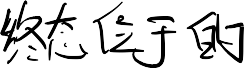 终态位于的